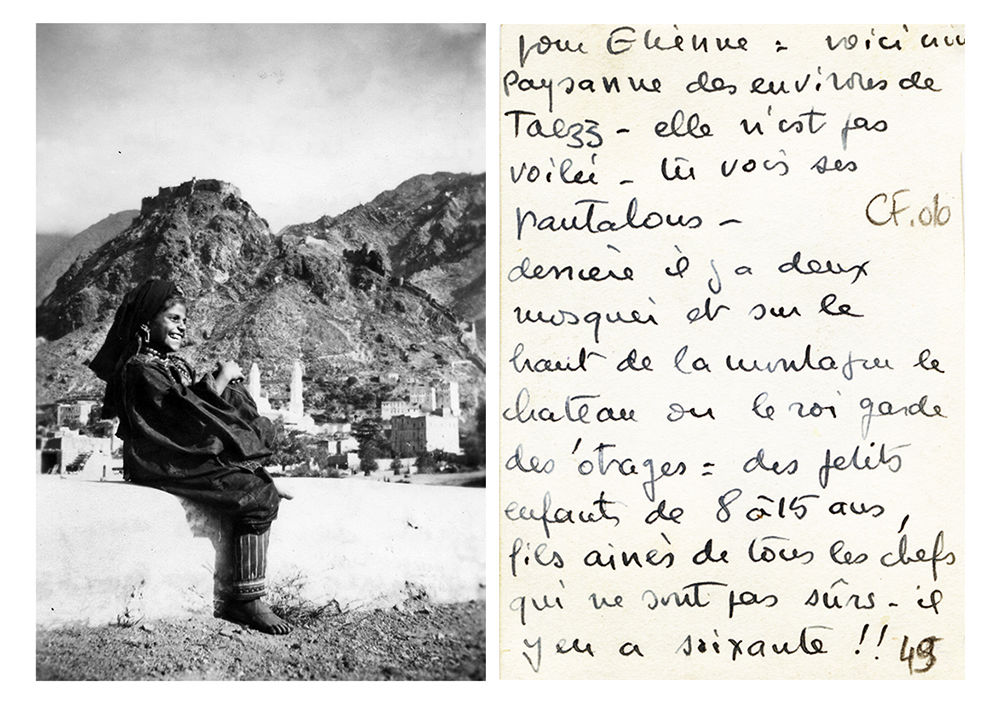 pour Etienne = voici une
Paysanne des environs de
Taezz - elle n'est pas
voilée - tu vois ses
pantalons -
CF.06
derrière il y a deux
mosquei et sur le
haut de la montagne le
chateau ou le roi garde
des otages = des petits
enfants de 8 à 15 ans,
fils ainés de tous les chefs
qui ne sont pas sûrs - il
y en a soixante !!
49